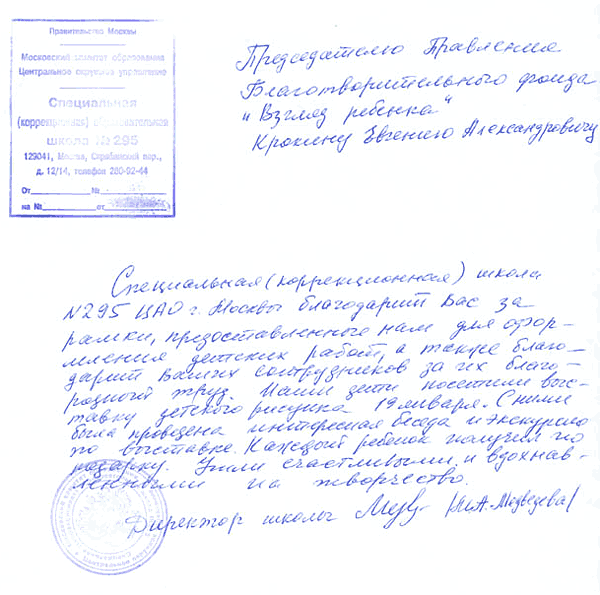 Правительство Москвы
Московский комитет образования
Центральное окружное управление
Специальная
(коррекционная) образовательная
школа № 295
129041, Москва, Скрабинский пер.,
д. 12/14, телефон 280-92-44
От № 
на № от
Председателю Правления
Благотворительного фонда
"Взгляд ребёнка"
Крохину Евгению Александровичу
Специальная (коррекционная) школа
N 295 ЦАО г. Москвы благодарит Вас за
рамки, предоставленные нам для офор-
мления детских работ, а также благо-
дарит Ваших сотрудников за их благо-
родный труд. Наши дети посетили выс-
тавку детского рисунка 19 января. С ними
была проведена интересная беседа и экскурсия
по выставке. Каждый ребёнок получил по
подарку. Ушли счастливыми и вдохнов-
ленными на творчество.
Директор школы /М.А. Медведева/